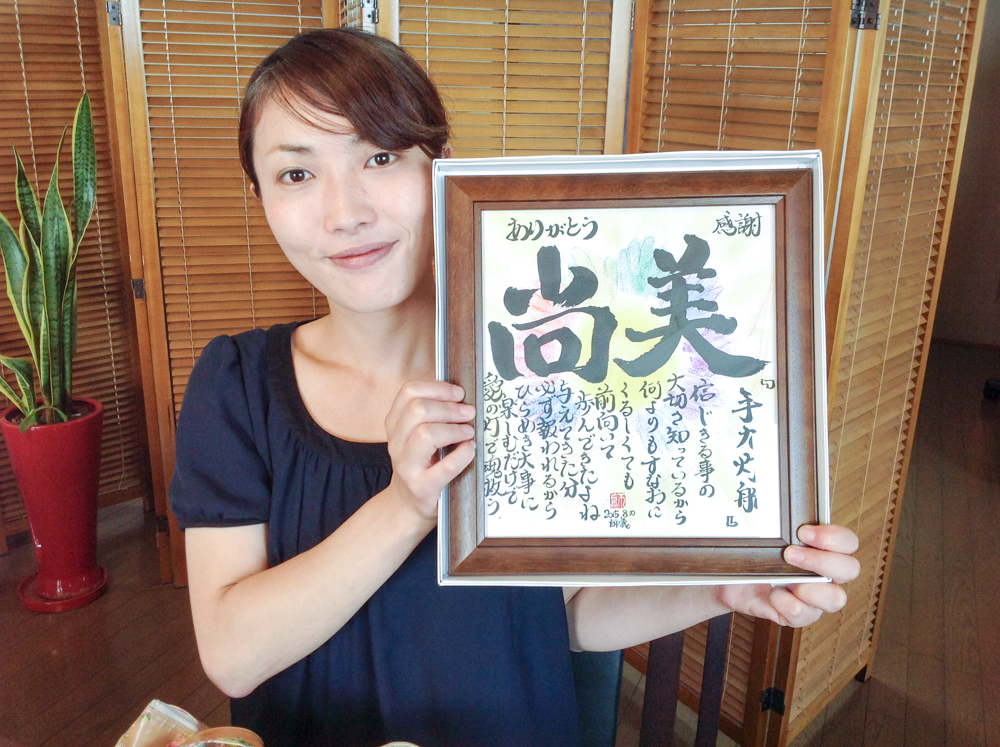 ありがとう
感謝
尚美
信じきる事の
大切さ知っているから
何よりもすなおに
くるしくても
前向いて
歩んできたよね
与えてきた分
必ず報われるから
ひらめき大事に
楽しむだけで
愛の灯で魂